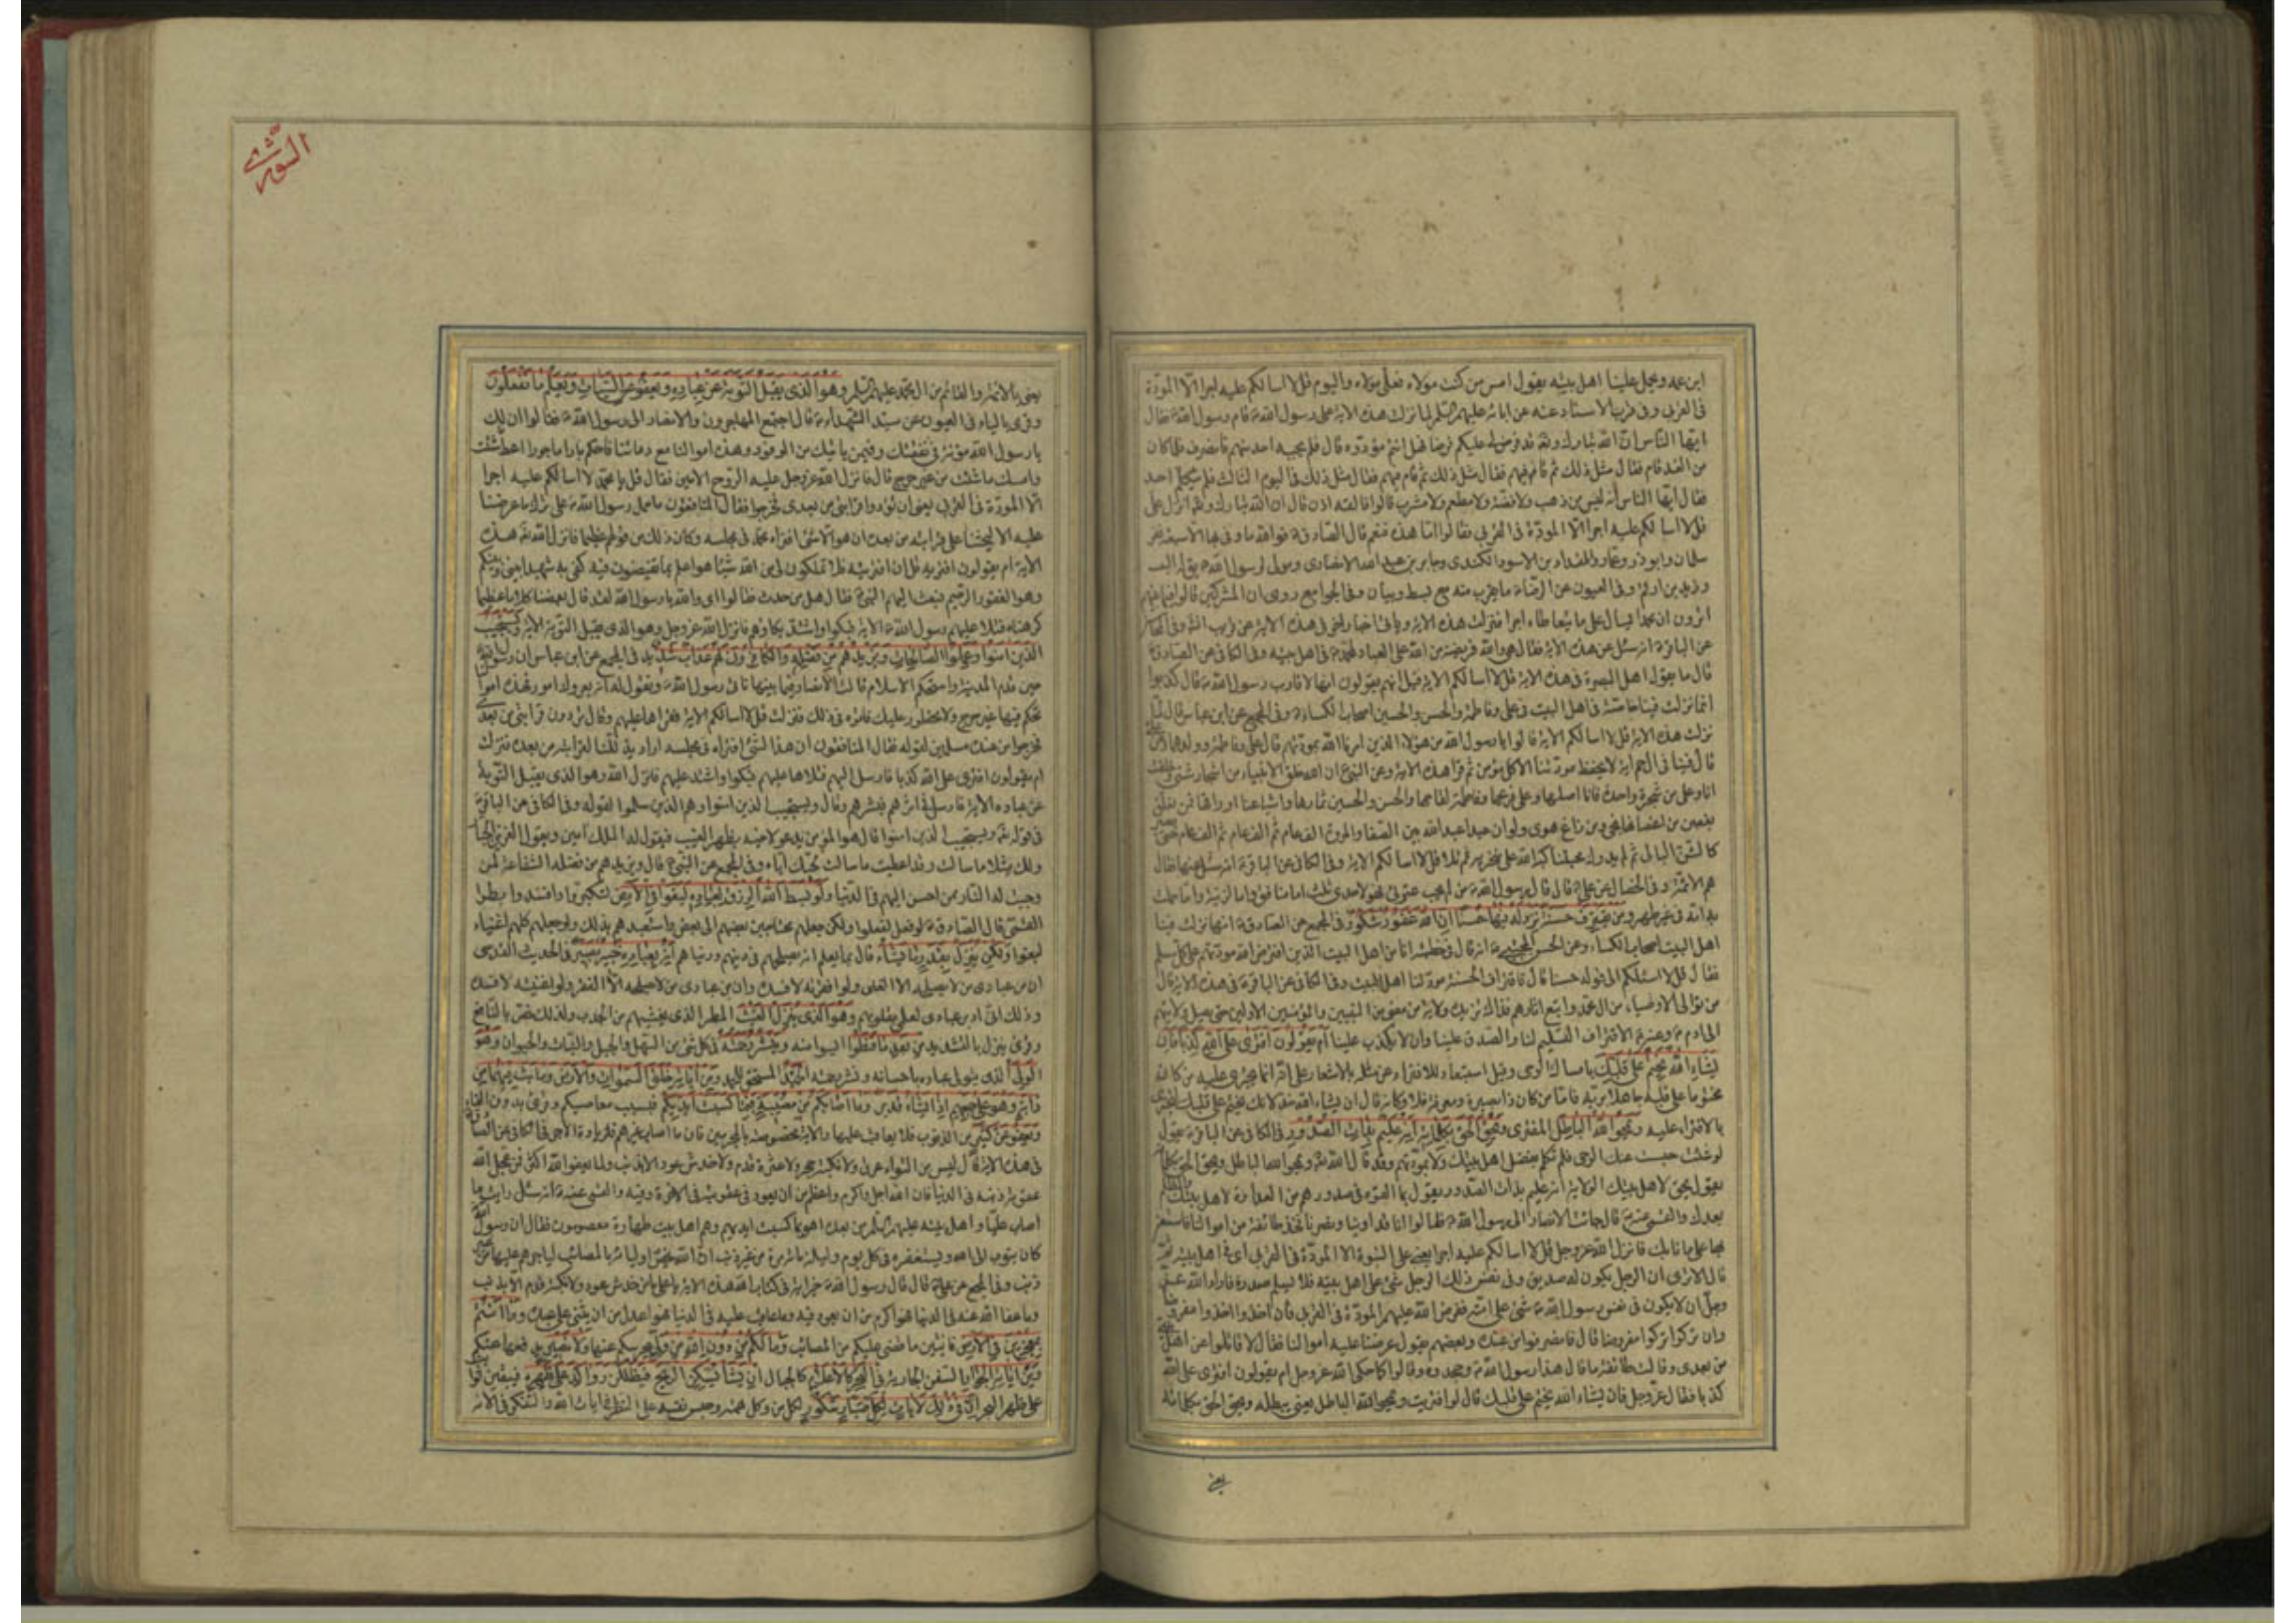 ابن عمه ويحمل علينا اهل بيته يقول امس من كنت مولاه فعلي مولاه واليوم قل لا اسالكم عليه اجرا الا المودة
في القربى وفي قرب الاسناد عنه عن ابائه عليهم السلم لما نزلت هذه الاية على رسول الله ص قام رسول الله ص فقال
ايها الناس ان الله تبارك وتعه قد فرض لي عليكم فرضا فهل انتم مؤدوه قال فلم يجبه احد منهم فانصرف فلما كان
من الغد قام فقال مثل ذلك ثم قام فيهم فقال مثل ذلك ثم قام فيهم فقال مثل ذلك في اليوم الثالث فلم يتكلم احد
فقال ايها الناس انه ليس من ذهب ولا فضة ولا مطعم ولا مشرب قالوا فالقه اذن قال ان الله تبارك وتعه انزل علي
قل لا اسالكم عليه اجرا الا المودة في القربى فقالوا اما هذه فنعم قال الصادق ع فوالله ما وفى بها الا سبعة نفر
سلمان وابو ذر وعمار والمقداد بن الاسود الكندي وجابر بن عبد الله الانصاري ومولى لرسول الله ص يقال له
وزيد بن ارقم وفي العيون عن الرضا ع ما يقرب منه مع بسط وبيان وفي الجوامع روى ان المشركين قالوا فيما بينهم
اترون ان محمدا يسال على ما يتعاطاه اجرا فنزلت هذه الاية وياتي اخبار اخر في هذه الاية عن قريب انش وفي
عن الباقر ع انه سئل عن هذه الاية فقال هي والله فريضة من الله على العباد لمحمد ص في اهل بيته وفي الكافي عن الصادق ع
قال ما يقول اهل البصرة في هذه الاية قل لا اسالكم الاية قيل انهم يقولون انها لاقارب رسول الله ص قال كذبوا
انما نزلت فينا خاصة في اهل البيت في علي وفاطمة والحسن والحسين اصحاب الكساء ع وفي المجمع عن ابن عباس قال لما
نزلت هذه الاية قل لا اسالكم الاية قالوا يا رسول الله من هؤلاء الذين امرنا الله بمودتهم قال علي وفاطمة وولدهما وعن
قال فينا في ال حم اية لا يحفظ مودتنا الا كل مؤمن ثم قرا هذه الاية وعن النبي ص ان الله خلق الانبياء من اشجار شتى وخلقت
انا وعلي من شجرة واحدة فانا اصلها وعلي فرعها وفاطمة لقاحها والحسن والحسين ثمارها واشياعنا اوراقها فمن تعلق
بغصن من اغصانها نجى ومن زاغ هوى ولو ان عبدا عبد الله بين الصفا والمروة الف عام ثم الف عام ثم الف عام حتى يصير
كالشن البالي ثم لم يدرك محبتنا كبه الله على منخريه ثم تلا قل لا اسالكم الاية وفي الكافي عن الباقر ع انه سئل عنها فقال
هم الائمة ع وفي الخصال عن علي ع قال قال رسول الله ص من لم يحب عترتي فهو لاحدى ثلث اما منافق واما لزنية واما حملت
به امه في غير طهر ومن يقترف حسنة نزد له فيها حسنا ان الله غفور شكور في المجمع عن الصادق ع انها نزلت فينا
اهل البيت اصحاب الكساء وعن الحسن المجتبى ع انه قال في خطبته انا من اهل البيت الذين افترض الله مودتهم على كل مسلم
فقال قل لا اسئلكم الى قوله حسنا قال فاقتراف الحسنة مودتنا اهل البيت وفي الكافي عن الباقر ع في هذه الاية قال
من توالى الاوصياء من ال محمد واتبع اثارهم فذاك نزيده ولاية من مضى من النبيين والمؤمنين الاولين حتى يصل ولايتهم
الى ادم ع وعنه ع الاقتراف التسليم لنا والصدق علينا وان لا يكذب علينا ام يقولون افترى على الله كذبا فان
يشاء الله يختم على قلبك بامساك الوحى وقيل استبعاد للافتراء عن مثله بالاشعار على انه انما يجترى عليه من كان
مختوما على قلبه جاهلا بربه فاما من كان ذا بصيرة ومعرفة فلا وكانه قال ان يشاء الله خذلانك يختم على قلبك لتجترى
بالافتراء عليه ويمحو الله الباطل المفترى ويحق الحق بكلماته انه عليم بذات الصدور في الكافي عن الباقر ع يقول
لو شئت حبست عنك الوحى فلم تكلم بفضل اهل بيتك ولا بمودتهم وقد قال الله تعه ويمحو الله الباطل ويحق الحق بكلماته
يقول يحق لاهل بيتك الولاية انه عليم بذات الصدور يقول بما القوه في صدورهم من العداوة لاهل بيتك والظلم
بعدك والقمي عنه ع قال جاءت الانصار الى رسول الله ص فقالوا انا قد اوينا ونصرنا فخذ طائفة من اموالنا فاستعن
بها على ما نابك فانزل الله عز وجل قل لا اسالكم عليه اجرا يعني على النبوة الا المودة في القربى اي في اهل بيته ثم
قال الا ترى ان الرجل يكون له صديق وفي نفس ذلك الرجل شئ على اهل بيته فلا يسلم صدره فاراد الله عز
وجل ان لا يكون في نفس رسول الله ص شئ على امته ففرض الله عليهم المودة في القربى فان اخذوا اخذوا مفروضا
وان تركوا تركوا مفروضا قال فانصرفوا من عنده وبعضهم يقول عرضنا عليه اموالنا فقال لا قاتلوا عن اهل بيتي
من بعدي وقالت طائفة ما قال هذا رسول الله ص وجحدوه وقالوا كما حكى الله عز وجل ام يقولون افترى على الله
كذبا فقال عز وجل فان يشاء الله يختم على قلبك قال لو افتريت ويمحو الله الباطل يعني يبطله ويحق الحق بكلماته
يعني
الشورى
يعني بالائمة والقائم من ال محمد عليهم السلم وهو الذي يقبل التوبة عن عباده ويعفو عن السيئات ويعلم ما تفعلون
وقرى بالياء في العيون عن سيد الشهداء ع قال اجتمع المهاجرون والانصار الى رسول الله ص فقالوا ان لك
يا رسول الله مؤنة في نفقتك وفيمن ياتيك من الوفود وهذه اموالنا مع دمائنا فاحكم بارا ماجورا اعط ما شئت
وامسك ما شئت من غير حرج قال فانزل الله عز وجل عليه الروح الامين فقال قل يا محمد لا اسالكم عليه اجرا
الا المودة في القربى يعني ان تودوا قرابتي من بعدي فخرجوا فقال المنافقون ما حمل رسول الله ص على ترك ما عرضنا
عليه الا ليحثنا على قرابته من بعده ان هو الا شئ افتراه محمد في مجلسه وكان ذلك من قولهم عظيما فانزل الله تعه هذه
الاية ام يقولون افتريه قل ان افتريته فلا تملكون لي من الله شيئا هو اعلم بما تفيضون فيه كفى به شهيدا بيني وبينكم
وهو الغفور الرحيم فبعث اليهم النبي ص فقال هل من حدث فقالوا اي والله يا رسول الله لقد قال بعضنا كلاما عظيما
كرهناه فتلا عليهم رسول الله ص الاية فبكوا واشتد بكاؤهم فانزل الله عز وجل وهو الذي يقبل التوبة الاية ويستجيب
الذين امنوا وعملوا الصالحات ويزيدهم من فضله والكافرون لهم عذاب شديد في المجمع عن ابن عباس ان رسول الله ص
حين قدم المدينة واستحكم الاسلام قالت الانصار فيما بينها ناتي رسول الله ص ونقول له انه يعروك امور فهذه اموالنا
تحكم فيها غير حرج ولا محظور عليك فاتوه في ذلك فنزلت قل لا اسالكم الاية فقراها عليهم وقال تودون قرابتي من بعدي
فخرجوا من عنده مسلمين لقوله فقال المنافقون ان هذا لشئ افتراه في مجلسه اراد يذللنا لقرابته من بعده فنزلت
ام يقولون افترى على الله كذبا فارسل اليهم فتلاها عليهم فبكوا واشتد عليهم فانزل الله وهو الذي يقبل التوبة
عن عباده الاية فارسل في اثرهم فبشرهم وقال ويستجيب الذين امنوا وهم الذين سلموا لقوله وفي الكافي عن الباقر ع
في قوله تعه ويستجيب الذين امنوا قال هو المؤمن يدعو لاخيه بظهر الغيب فيقول له الملك امين ويقول العزيز الجبار
ولك مثلا ما سالت وقد اعطيت ما سالت لحبك اياه وفي المجمع عن النبي ص قال ويزيدهم من فضله الشفاعة لمن
وجبت له النار ممن احسن اليهم في الدنيا ولو بسط الله الرزق لعباده لبغوا في الارض لتكبروا وافسدوا بطرا
القمي قال الصادق ع لو فعل لفعلوا ولكن جعلهم محتاجين بعضهم الى بعض واستعبدهم بذلك ولو جعلهم كلهم اغنياء
لبغوا ولكن ينزل بقدر ما يشاء قال بما يعلم انه يصلحهم في دينهم ودنياهم انه بعباده خبير بصير في الحديث القدسي
ان من عبادي من لا يصلحه الا الغنى ولو افقرته لافسده وان من عبادي من لا يصلحه الا الفقر ولو اغنيته لافسده
وذلك اني ادبر عبادي لعلمي بقلوبهم وهو الذي ينزل الغيث المطر الذي يغيثهم من الجدب ولذلك خص بالنافع
وقرئ ينزل بالتشديد من بعد ما قنطوا ايسوا منه وينشر رحمته في كل شئ من السهل والجبل والنبات والحيوان وهو
الولي الذي يتولى عباده باحسانه ونشر رحمته الحميد المستحق للحمد ومن اياته خلق السموات والارض وما بث فيهما من
دابة وهو على جمعهم اذا يشاء قدير وما اصابكم من مصيبة فبما كسبت ايديكم فبسبب معاصيكم وقرئ بدون الفاء
ويعفو عن كثير من الذنوب فلا يعاقب عليها والاية مخصوصة بالمجرمين فان ما اصاب غيرهم فلزيادة الاجر في الكافي عن الصادق ع
في هذه الاية قال ليس من التواء عرق ولا نكبة حجر ولا عثرة قدم ولا خدش عود الا بذنب ولما يعفو الله اكثر فمن عجل الله
عقوبة ذنبه في الدنيا فان الله اجل واكرم واعظم من ان يعود في عقوبته في الاخرة وفيه والقمي عنه ع انه سئل ارايت ما
اصاب عليا واهل بيته عليهم السلم من بعده اهو بما كسبت ايديهم وهم اهل بيت طهارة معصومون فقال ان رسول الله
كان يتوب الى الله ويستغفره في كل يوم وليلة مائة مرة من غير ذنب ان الله يخص اولياءه بالمصائب لياجرهم عليها من غير
ذنب وفي المجمع عن علي ع قال قال رسول الله ص خير اية في كتاب الله هذه الاية يا علي ما من خدش عود ولا نكبة قدم الا بذنب
وما عفا الله عنه في الدنيا فهو اكرم من ان يعود فيه وما عاقب عليه في الدنيا فهو اعدل من ان يثني على عبده وما انتم
بمعجزين في الارض فائتين ما قضى عليكم من المصائب وما لكم من دون الله من ولي يحرسكم عنها ولا نصير يدفعها عنكم
ومن اياته الجوار السفن الجارية في البحر كالاعلام كالجبال ان يشا يسكن الريح فيظللن رواكد على ظهره فيبقين ثوابت
على ظهر البحر ان في ذلك لايات لكل صبار شكور لكل من وكل همته وحبس نفسه على النظر في ايات الله والتفكر في الائه